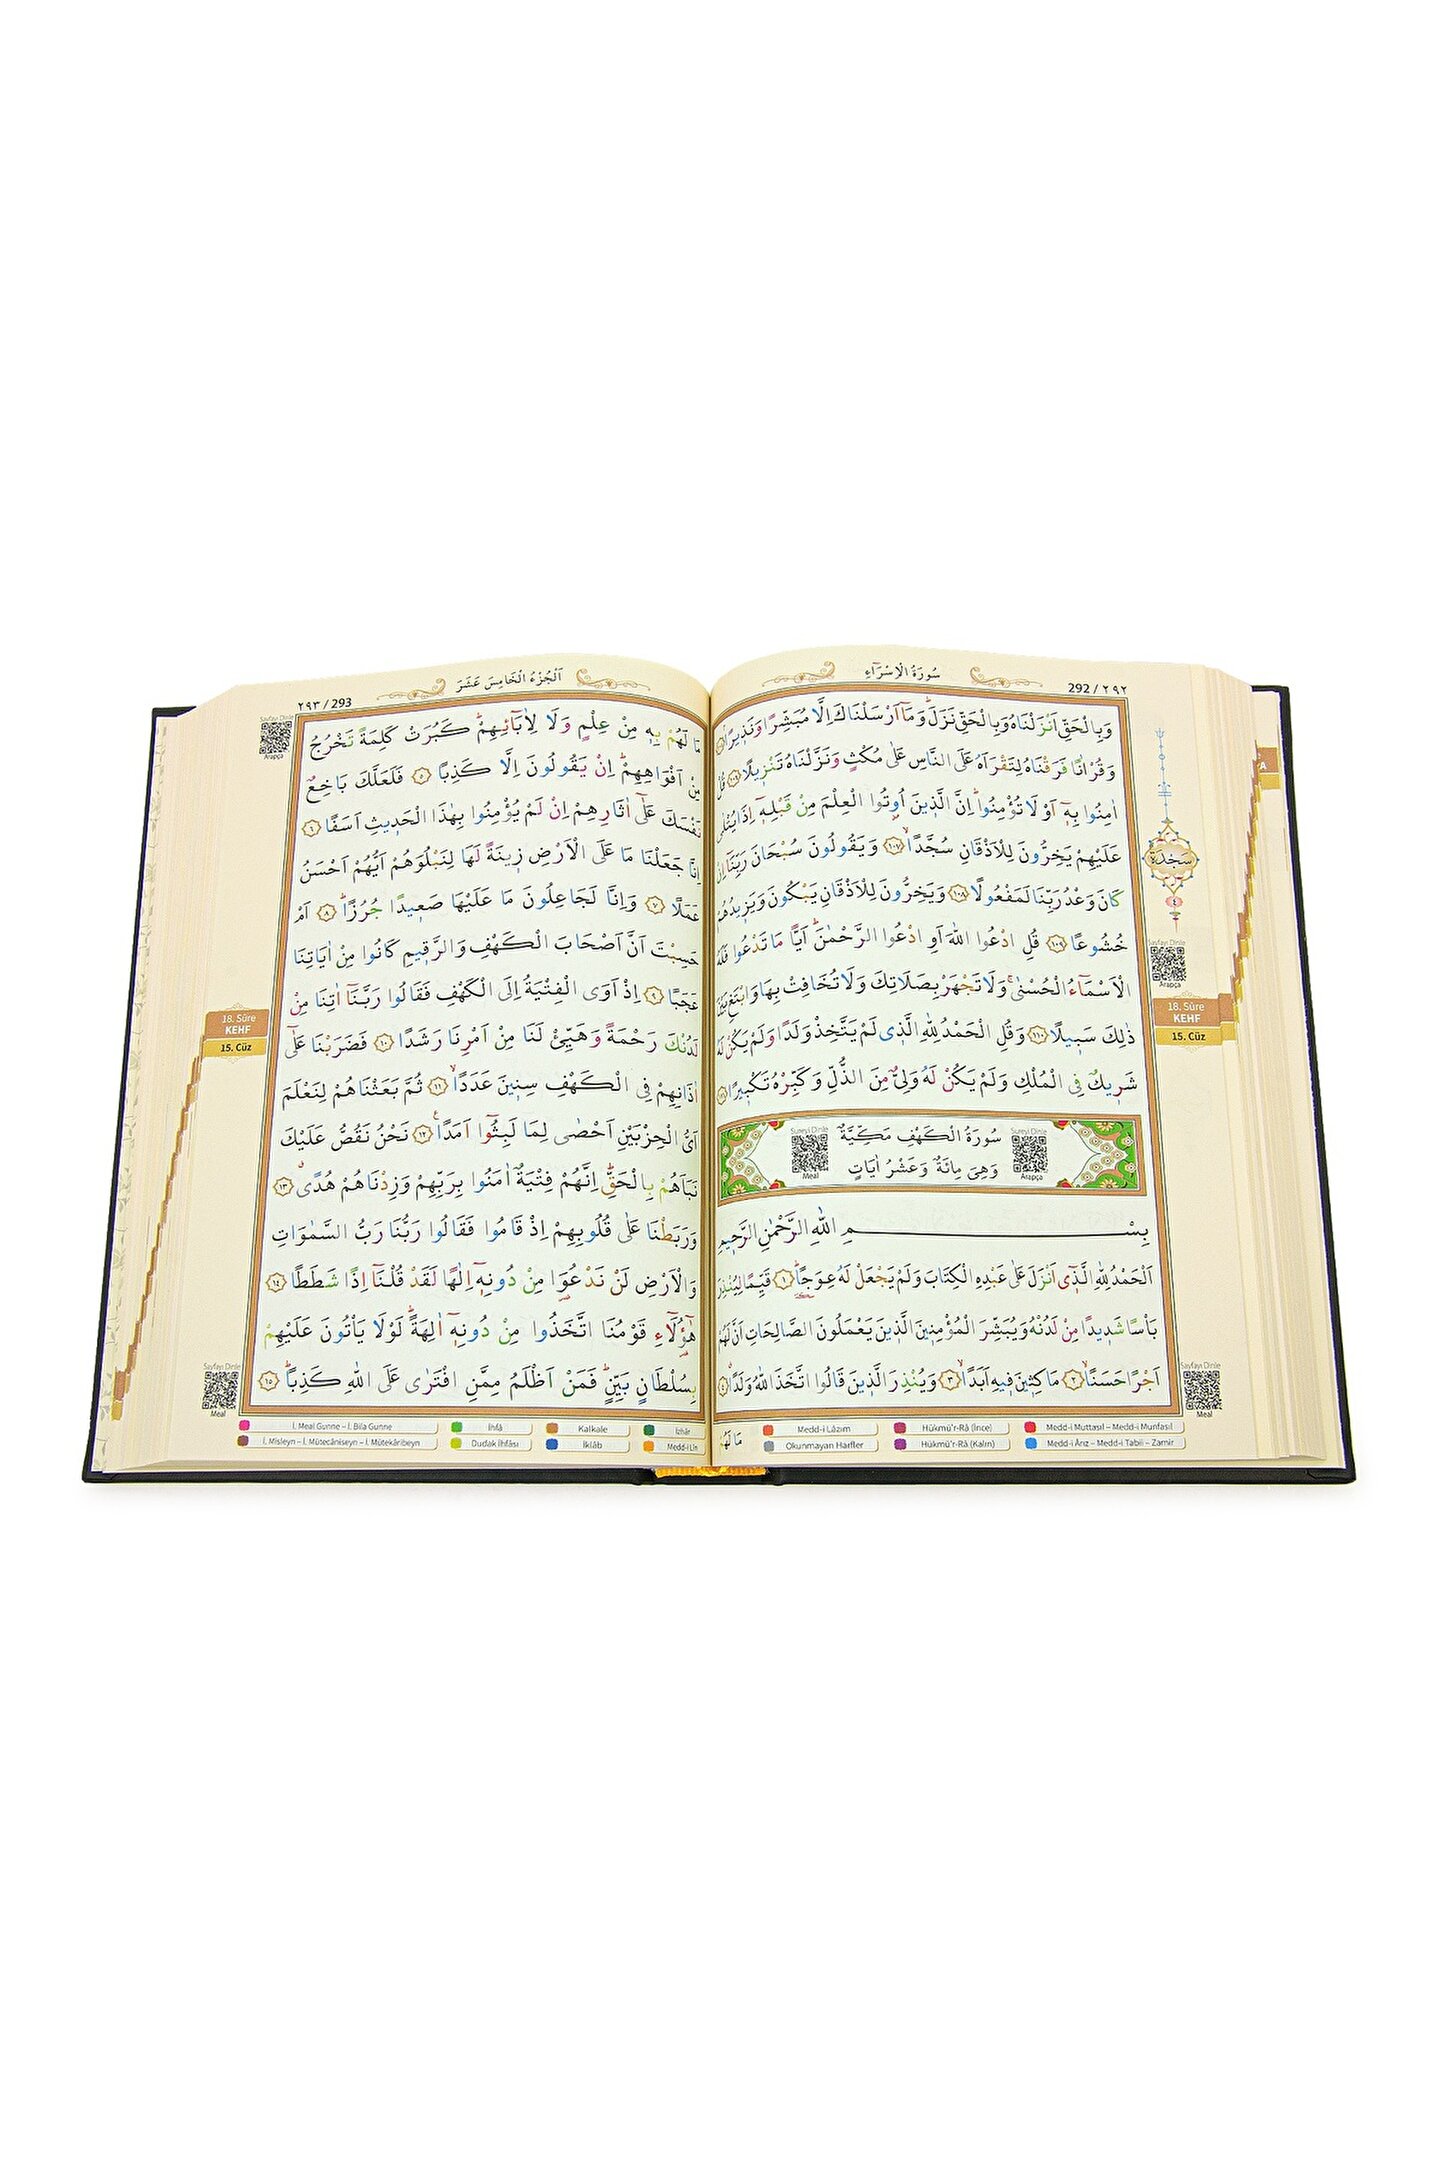 سُورَةُ الْاِسْرَاءِ
292 / ٢٩٢
وَبِالْحَقِّ اَنْزَلْنَاهُ وَبِالْحَقِّ نَزَلَۜ وَمَٓا اَرْسَلْنَاكَ اِلَّا مُبَشِّرًا وَنَذِيرًاۢ
وَقُرْاٰنًا فَرَقْنَاهُ لِتَقْرَاَهُ عَلَى النَّاسِ عَلٰى مُكْثٍ وَنَزَّلْنَاهُ تَنْزِيلًا ﴿١٠٦﴾ قُلْ
اٰمِنُوا بِهِٓ اَوْ لَا تُؤْمِنُواۜ اِنَّ الَّذِينَ اُو۫تُوا الْعِلْمَ مِنْ قَبْلِهِٓ اِذَا يُتْلٰى
عَلَيْهِمْ يَخِرُّونَ لِلْاَذْقَانِ سُجَّدًاۙ ﴿١٠٧﴾ وَيَقُولُونَ سُبْحَانَ رَبِّنَٓا اِنْ
كَانَ وَعْدُ رَبِّنَا لَمَفْعُولًا ﴿١٠٨﴾ وَيَخِرُّونَ لِلْاَذْقَانِ يَبْكُونَ وَيَزِيدُهُمْ
خُشُوعًا ﴿١٠٩﴾ قُلِ ادْعُوا اللّٰهَ اَوِ ادْعُوا الرَّحْمٰنَۜ اَيًّا مَا تَدْعُوا فَلَهُ
الْاَسْمَٓاءُ الْحُسْنٰىۚ وَلَا تَجْهَرْ بِصَلَاتِكَ وَلَا تُخَافِتْ بِهَا وَابْتَغِ بَيْنَ
ذٰلِكَ سَبِيلًا ﴿١١٠﴾ وَقُلِ الْحَمْدُ لِلّٰهِ الَّذِى لَمْ يَتَّخِذْ وَلَدًا وَلَمْ يَكُنْ لَهُ
شَرِيكٌ فِى الْمُلْكِ وَلَمْ يَكُنْ لَهُ وَلِىٌّ مِنَ الذُّلِّ وَكَبِّرْهُ تَكْبِيرًا ﴿١١١﴾
سُورَةُ الْكَهْفِ مَكِّيَّةٌ
وَهِىَ مِائَةٌ وَعَشْرُ اٰيَاتٍ
Sureyi Dinle
Meal
Sureyi Dinle
Arapça
بِسْمِ اللّٰهِ الرَّحْمٰنِ الرَّحِيمِ
اَلْحَمْدُ لِلّٰهِ الَّذِٓى اَنْزَلَ عَلٰى عَبْدِهِ الْكِتَابَ وَلَمْ يَجْعَلْ لَهُ عِوَجًاۜ ﴿١﴾ قَيِّمًا لِيُنْذِرَ
بَاْسًا شَدِيدًا مِنْ لَدُنْهُ وَيُبَشِّرَ الْمُؤْمِنِينَ الَّذِينَ يَعْمَلُونَ الصَّالِحَاتِ اَنَّ لَهُمْ
اَجْرًا حَسَنًاۙ ﴿٢﴾ مَاكِثِينَ فِيهِ اَبَدًاۙ ﴿٣﴾ وَيُنْذِرَ الَّذِينَ قَالُوا اتَّخَذَ اللّٰهُ وَلَدًاۗ ﴿٤﴾
مَا لَهُمْ
سَجْدَةٌ
Sayfayı Dinle
Arapça
18. Sûre
KEHF
15. Cüz
Sayfayı Dinle
Meal
Medd-i Lâzım
Hükmü'r-Râ (İnce)
Medd-i Muttasıl – Medd-i Munfasıl
Okunmayan Harfler
Hükmü'r-Râ (Kalın)
Medd-i Ârız – Medd-i Tabiî – Zamir
٢٩٣ / 293
اَلْجُزْءُ الْخَامِسَ عَشَرَ
Sayfayı Dinle
Arapça
مَا لَهُمْ بِهِ مِنْ عِلْمٍ وَلَا لِاٰبَٓائِهِمْۜ كَبُرَتْ كَلِمَةً تَخْرُجُ
مِنْ اَفْوَاهِهِمْۜ اِنْ يَقُولُونَ اِلَّا كَذِبًا ﴿٥﴾ فَلَعَلَّكَ بَاخِعٌ
نَفْسَكَ عَلٰٓى اٰثَارِهِمْ اِنْ لَمْ يُؤْمِنُوا بِهٰذَا الْحَدِيثِ اَسَفًا ﴿٦﴾
اِنَّا جَعَلْنَا مَا عَلَى الْاَرْضِ زِينَةً لَهَا لِنَبْلُوَهُمْ اَيُّهُمْ اَحْسَنُ
عَمَلًا ﴿٧﴾ وَاِنَّا لَجَاعِلُونَ مَا عَلَيْهَا صَعِيدًا جُرُزًاۜ ﴿٨﴾ اَمْ
حَسِبْتَ اَنَّ اَصْحَابَ الْكَهْفِ وَالرَّقِيمِ كَانُوا مِنْ اٰيَاتِنَا
عَجَبًا ﴿٩﴾ اِذْ اَوَى الْفِتْيَةُ اِلَى الْكَهْفِ فَقَالُوا رَبَّنَٓا اٰتِنَا مِنْ
لَدُنْكَ رَحْمَةً وَهَيِّئْ لَنَا مِنْ اَمْرِنَا رَشَدًا ﴿١٠﴾ فَضَرَبْنَا عَلٰٓى
اٰذَانِهِمْ فِى الْكَهْفِ سِنِينَ عَدَدًاۙ ﴿١١﴾ ثُمَّ بَعَثْنَاهُمْ لِنَعْلَمَ
اَىُّ الْحِزْبَيْنِ اَحْصٰى لِمَا لَبِثُٓوا اَمَدًاۚ ﴿١٢﴾ نَحْنُ نَقُصُّ عَلَيْكَ
نَبَاَهُمْ بِالْحَقِّۜ اِنَّهُمْ فِتْيَةٌ اٰمَنُوا بِرَبِّهِمْ وَزِدْنَاهُمْ هُدًىۗ ﴿١٣﴾
وَرَبَطْنَا عَلٰى قُلُوبِهِمْ اِذْ قَامُوا فَقَالُوا رَبُّنَا رَبُّ السَّمٰوَاتِ
وَالْاَرْضِ لَنْ نَدْعُوَ۬ا مِنْ دُونِهِٓ اِلٰهًا لَقَدْ قُلْنَٓا اِذًا شَطَطًا ﴿١٤﴾
هٰٓؤُ۬لَٓاءِ قَوْمُنَا اتَّخَذُوا مِنْ دُونِهِٓ اٰلِهَةًۜ لَوْلَا يَاْتُونَ عَلَيْهِمْ
بِسُلْطَانٍ بَيِّنٍۜ فَمَنْ اَظْلَمُ مِمَّنِ افْتَرٰى عَلَى اللّٰهِ كَذِبًاۜ ﴿١٥﴾
18. Sûre
KEHF
15. Cüz
Sayfayı Dinle
Meal
İ. Meal Gunne – İ. Bila Gunne
İhfâ
Kalkale
İzhâr
İ. Misleyn – İ. Mütecâniseyn – İ. Mütekâribeyn
Dudak İhfâsı
İklâb
Medd-i Lîn